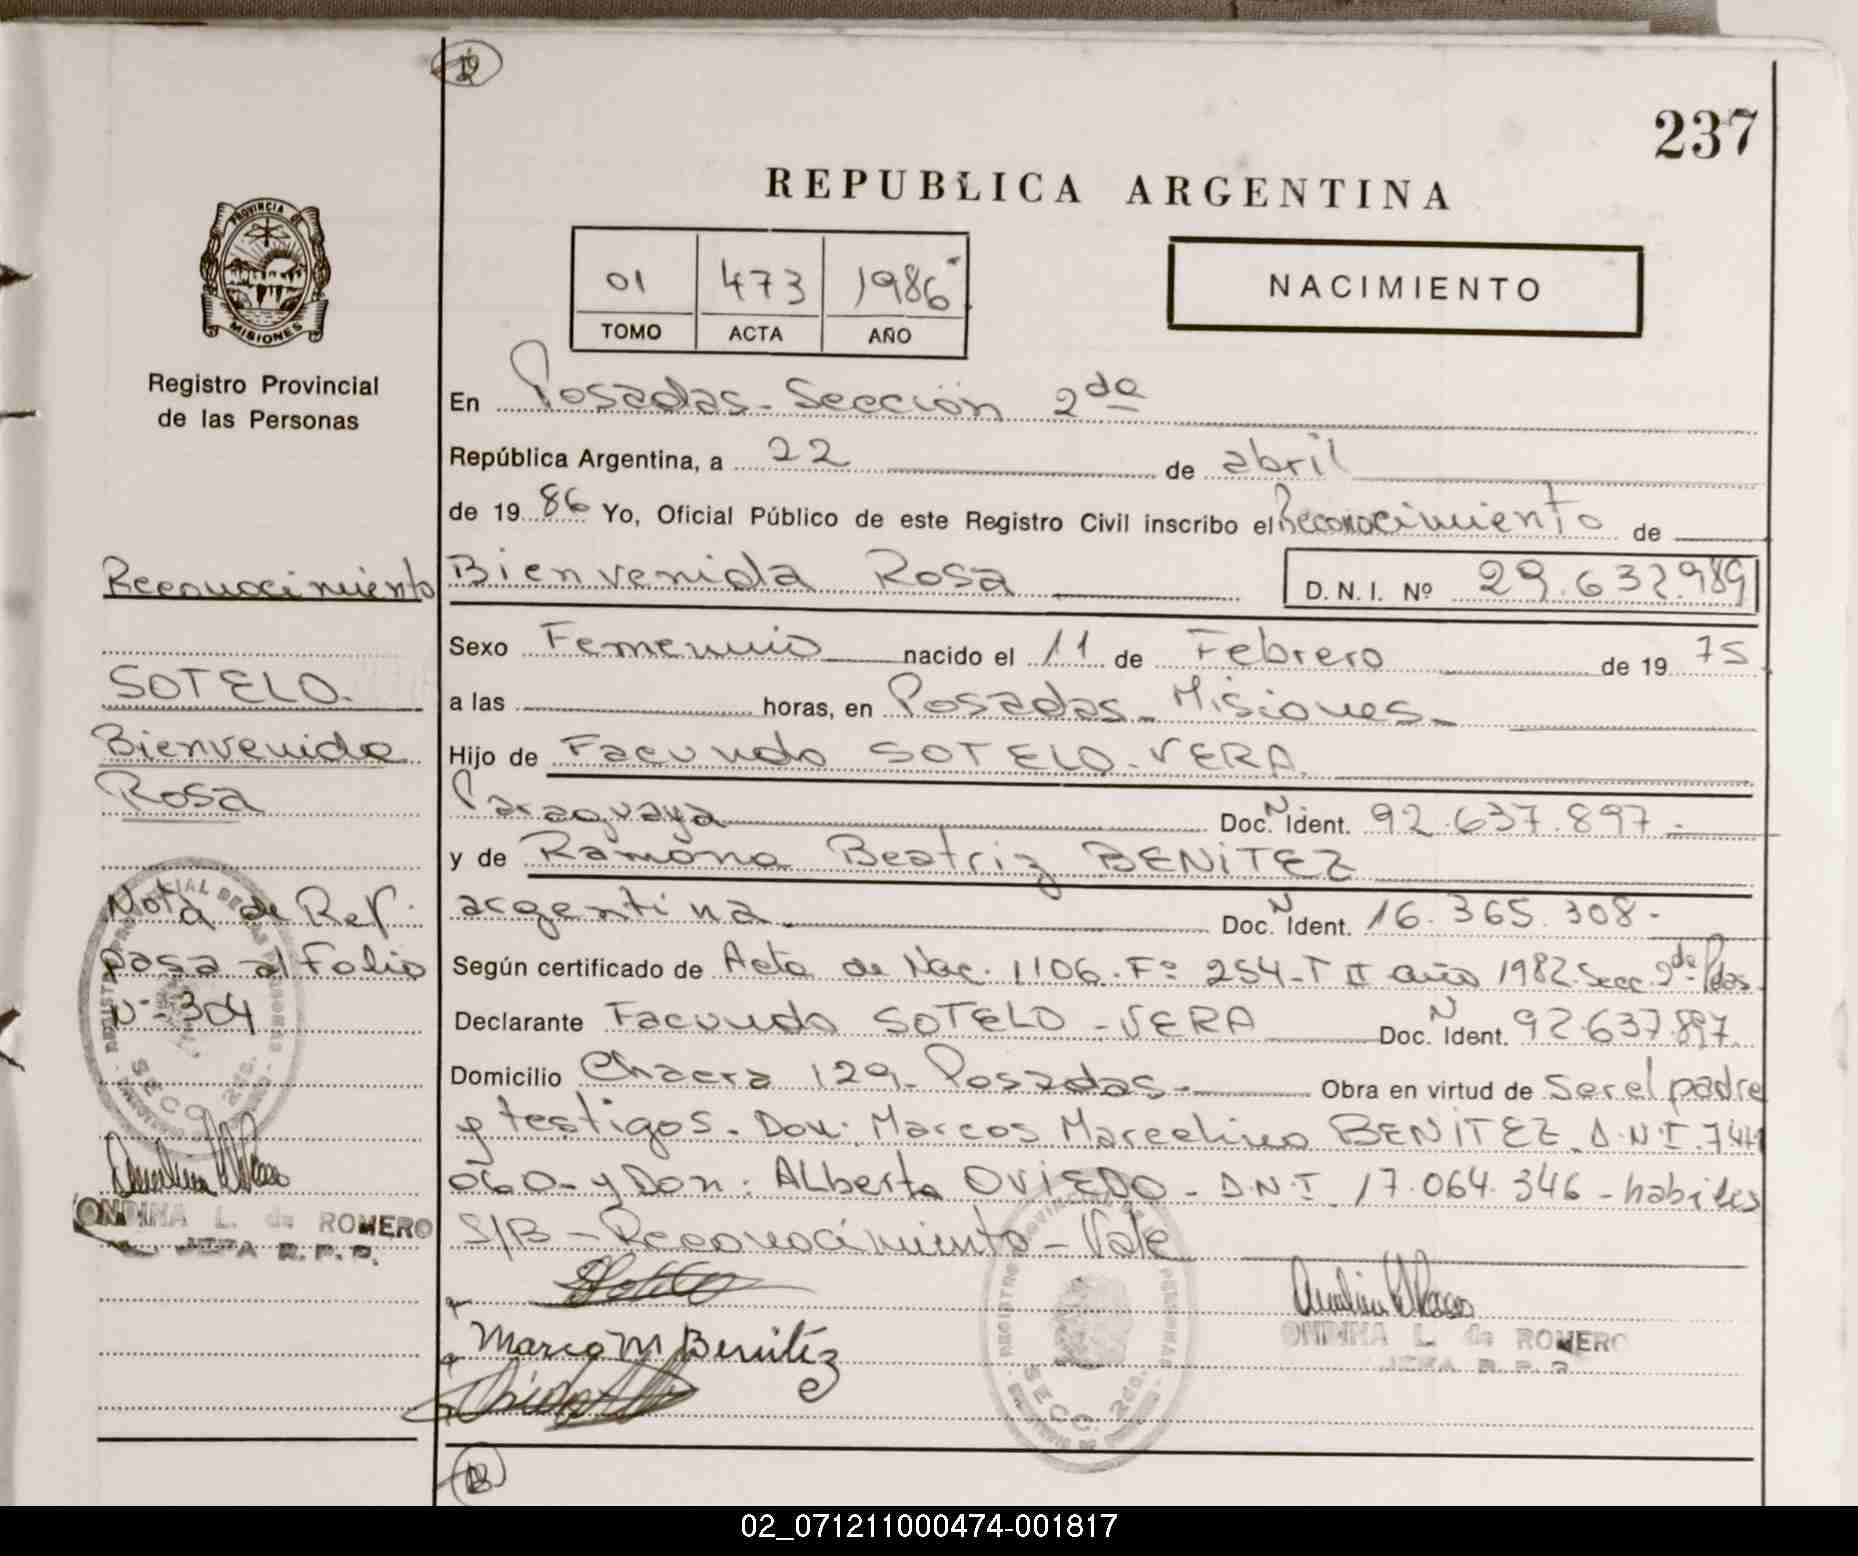 237
REPUBLICA ARGENTINA
01 473 1986
TOMO ACTA AÑO
NACIMIENTO
PROVINCIA DE
MISIONES
Registro Provincial
de las Personas
En Posadas - Sección 2da
República Argentina, a 22 de abril
de 19 86 Yo, Oficial Público de este Registro Civil inscribo el Reconocimiento de
Bienvenida Rosa D. N. I. Nº 29.632.989
Sexo Femenino nacido el 11 de Febrero de 19 75
a las horas, en Posadas - Misiones -
Hijo de Facundo SOTELO - VERA
Paraguaya Doc. N Ident. 92.637.897 -
y de Ramona Beatriz BENITEZ
argentina Doc. N Ident. 16.365.308 -
Según certificado de Acta de Nac. 1106. Fº 254 - T II año 1982. Secc. 2da Pdas.
Declarante Facundo SOTELO - VERA Doc. N Ident. 92.637.897
Domicilio Chacra 129 - Posadas - Obra en virtud de Ser el padre
y testigos - Don: Marcos Marcelino BENITEZ D.N.I. 7.411
060 - y Don: ALberto OVIEDO - D.N.I. 17.064.346 - habiles
S/B - Reconocimiento - Vale
Marco M Benitez
ONDINA L. de ROMERO
JEFA R.P.P.
SECC. 2da.
Reconocimiento
SOTELO.
Bienvenida
Rosa
Nota de Ref.
pasa al Folio
Nº 304
SECC. 2da.
ONDINA L. de ROMERO
JEFA R.P.P.
02_071211000474-001817